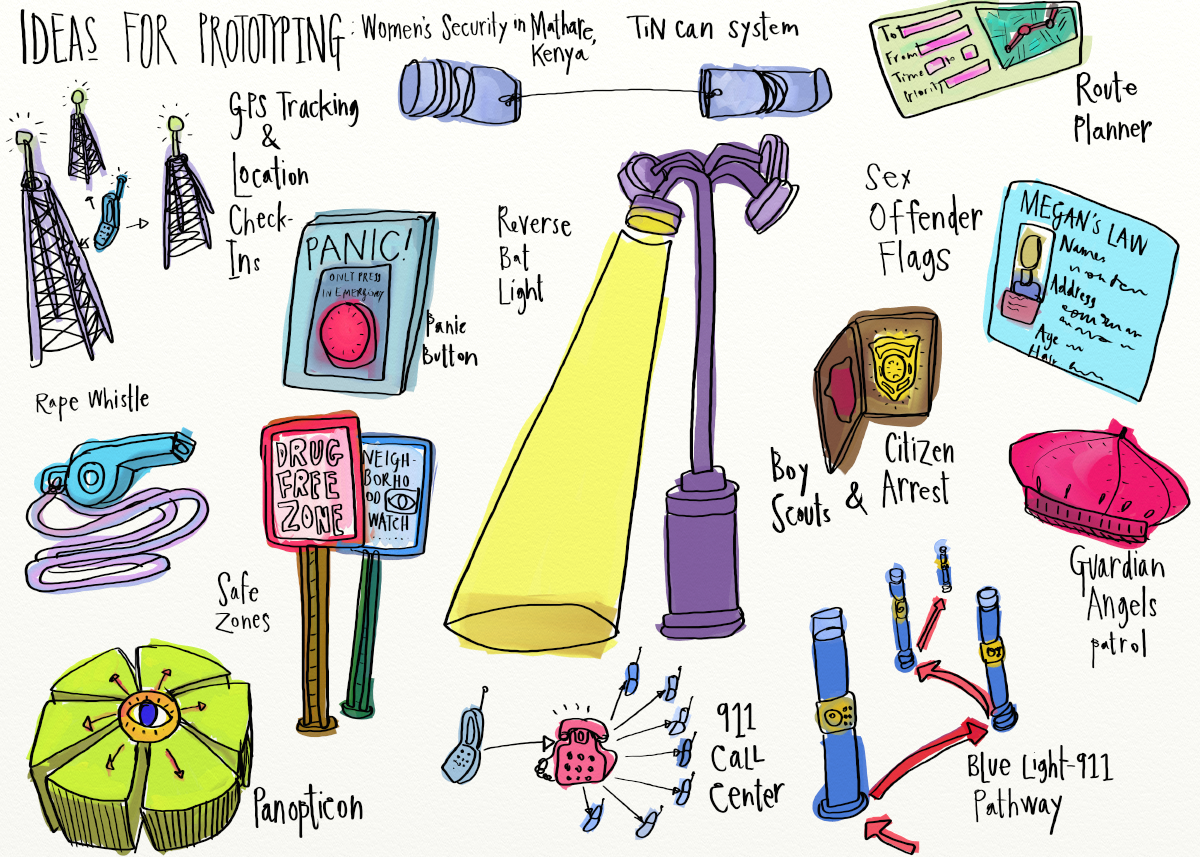 IDEAS FOR PROTOTYPING: Women's Security in Mathare,
Kenya
TiN can system
To
From
Time to
Priority
Route
Planner
GPS Tracking
&
Location
Check-
Ins
PANIC!
ONLY PRESS
IN EMERGENCY
Panic
Button
Reverse
Bat
Light
Sex
Offender
Flags
MEGAN'S LAW
Names
Address
Age
Hair
Rape Whistle
DRUG
FREE
ZONE
NEIGH-
BORHO
OD
WATCH
Safe
Zones
Boy
Scouts & Citizen
Arrest
Guardian
Angels
patrol
Panopticon
911
Call
Center
Blue Light-911
Pathway